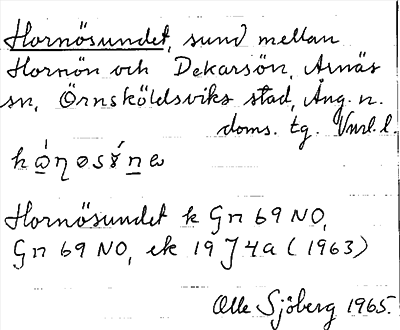 Hornösundet, sund mellan
Hornön och Dekarsön, Arnäs
sn, Örnsköldsviks stad, Ång. n.
doms. tg. Vnrl. l.
Hornösundet k Gn 69 NO,
Gn 69 NO, ek 19 J 4a (1963)
Olle Sjöberg 1965.